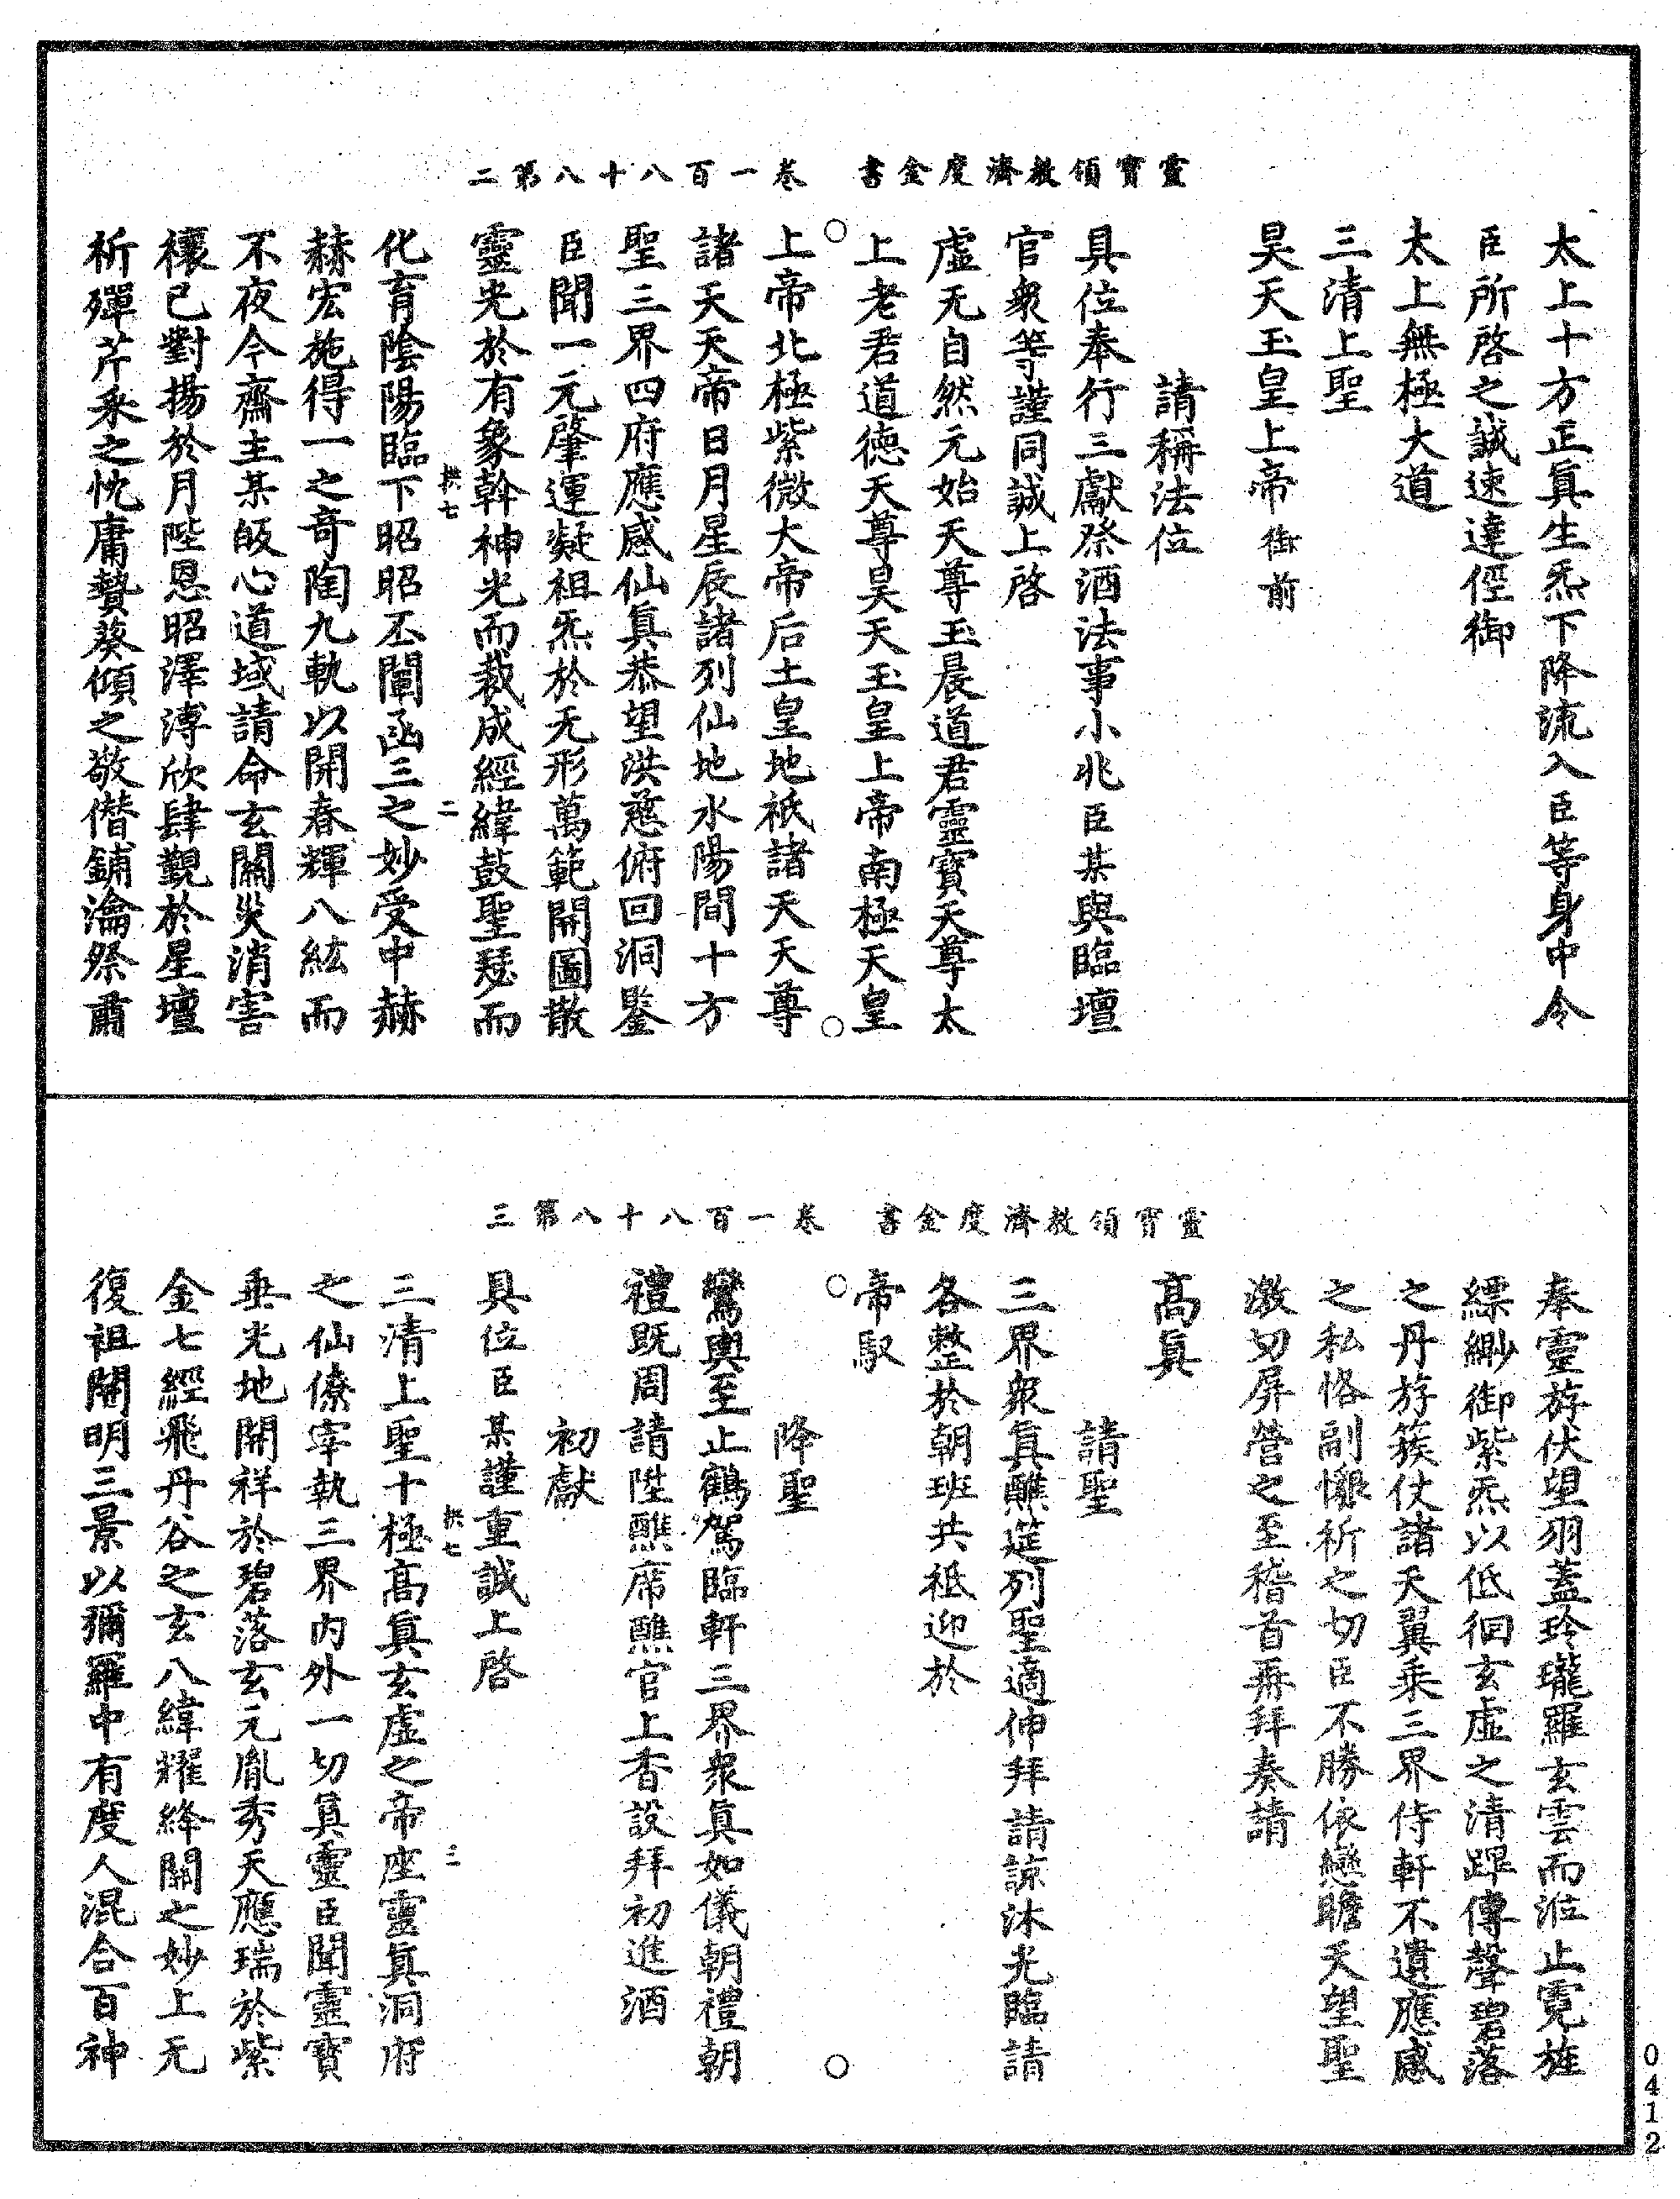 靈寶領教濟度金書　卷一百八十八第二
太上十方正真生炁下降流入臣等身中令
臣所啓之誠速達徑御
太上無極大道
三清上聖
昊天玉皇上帝御前
請稱法位
具位奉行三獻祭酒法事小兆臣某與臨壇
官衆等謹同誠上啓
虛无自然元始天尊玉晨道君靈寶天尊太
上老君道德天尊昊天玉皇上帝南極天皇
上帝北極紫微大帝后土皇地祇諸天天尊
諸天天帝日月星辰諸列仙地水陽間十方
聖三界四府應感仙真恭望洪慈俯回洞鑒
臣聞一元肇運凝祖炁於无形萬範開圖散
靈光於有象幹神光而裁成經緯鼓聖瑟而
拱七
二
化育陰陽臨下昭昭丕闡函三之妙受中赫
赫宏施得一之奇陶九軌以開春輝八紘而
不夜今齋主某皈心道域請命玄關災消害
禳已對揚於月陛恩昭澤溥欣肆覲於星壇
祈殫芹采之忱庸贄葵傾之敬僭鋪瀹祭肅
靈寶領教濟度金書　卷一百八十八第三
奉靈斿伏望羽蓋玲瓏羅玄雲而涖止霓旌
縹緲御紫炁以低徊玄虛之清蹕傳聲碧落
之丹斿簇仗諸天翼乘三界侍軒不遺應感
之私恪副懇祈之切臣不勝依戀瞻天望聖
激切屏營之至稽首再拜奏請
高真
請聖
三界衆真醮筵列聖適伸拜請諒沐光臨請
各整於朝班共祗迎於
帝馭
降聖
鸞輿至止鶴駕臨軒三界衆真如儀朝禮朝
禮既周請陞醮席醮官上香設拜初進酒
初獻
具位臣某謹重誠上啓
拱七
三
三清上聖十極高真玄虛之帝座靈真洞府
之仙僚宰執三界內外一切真靈臣聞靈寶
垂光地開祥於碧落玄元胤秀天應瑞於紫
金七經飛丹谷之玄八緯耀絳關之妙上无
復祖開明三景以彌羅中有度人混合百神
0412